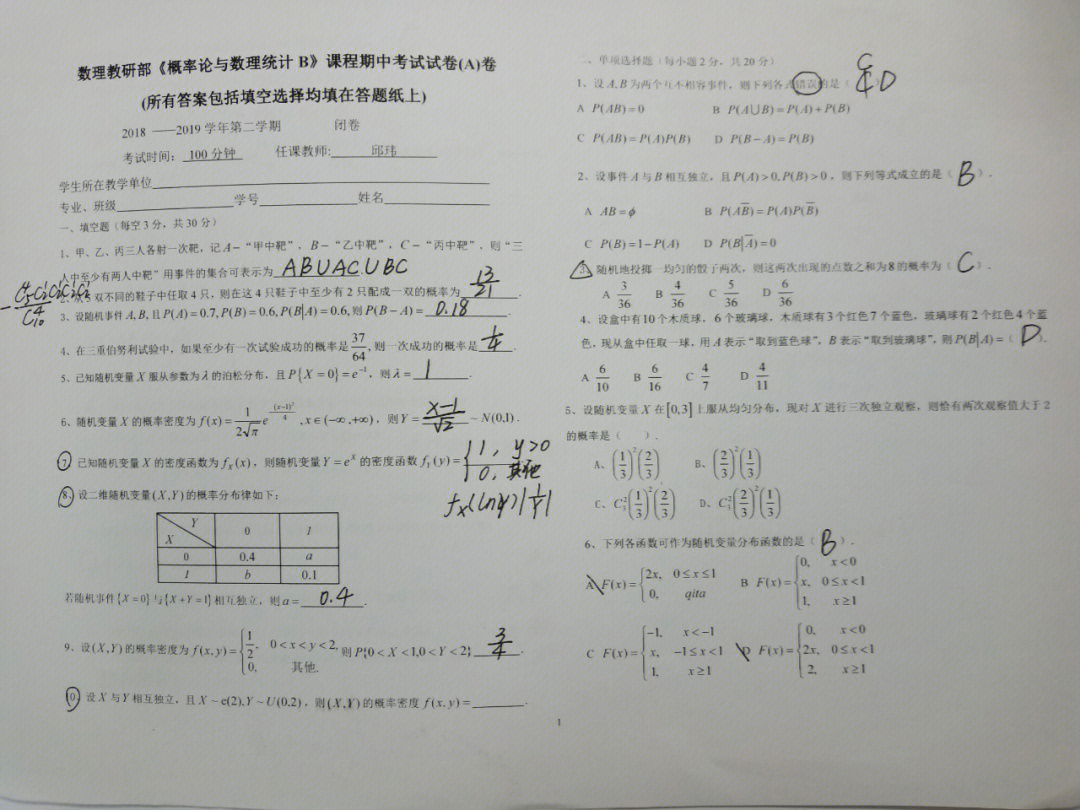 数理教研部《概率论与数理统计 B》课程期中考试试卷(A)卷
(所有答案包括填空选择均填在答题纸上)
2018 ——2019 学年第二学期 闭卷
考试时间: 100 分钟 任课教师: 邱玮
学生所在教学单位
专业、班级 学号 姓名
一、填空题(每空 3 分,共 30 分)
1、甲、乙、丙三人各射一次靶,记 A—“甲中靶”,B—“乙中靶”,C—“丙中靶”,则“三
人中至少有两人中靶”用事件的集合可表示为 ABUACUBC
2、从 5 双不同的鞋子中任取 4 只,则在这 4 只鞋子中至少有 2 只配成一双的概率为 13/21 .
3、设随机事件 A, B, 且 P(A) = 0.7, P(B) = 0.6, P(B|A) = 0.6, 则 P(B − A) = 0.18 .
4、在三重伯努利试验中,如果至少有一次试验成功的概率是 37/64, 则一次成功的概率是 1/4 .
5、已知随机变量 X 服从参数为 λ 的泊松分布,且 P{X = 0} = e⁻¹,则 λ = 1 .
6、随机变量 X 的概率密度为 f(x) = 1/(2√π) e^(−(x−1)²/4), x ∈ (−∞, +∞),则 Y = (X−1)/√2 ~ N(0,1) .
7、已知随机变量 X 的密度函数为 f_X(x),则随机变量 Y = e^X 的密度函数 f_Y(y) = { 1, y>0
0, 其他
f_X(lny)|1/y|
8、设二维随机变量(X,Y)的概率分布律如下:
Y 0 1
X
0 0.4 a
1 b 0.1
若随机事件{X = 0}与{X + Y = 1}相互独立,则 a = 0.4 .
9、设(X,Y)的概率密度为 f(x, y) = { 1/2, 0 < x < y < 2, 则 P{0 < X < 1, 0 < Y < 2} 3/4 .
0, 其他.
10、设 X 与 Y 相互独立,且 X ~ e(2), Y ~ U(0.2),则(X,Y)的概率密度 f(x, y) = .
二、单项选择题(每小题 2 分,共 20 分)
1、设 A,B 为两个互不相容事件,则下列各式错误的是( D
A P(AB) = 0 B P(A∪B) = P(A) + P(B)
C P(AB) = P(A)P(B) D P(B − A) = P(B)
2、设事件 A 与 B 相互独立,且 P(A) > 0, P(B) > 0,则下列等式成立的是( B ).
A AB = ϕ B P(AB̅) = P(A)P(B̅)
C P(B) = 1 − P(A) D P(B|A̅) = 0
3、随机地投掷一均匀的骰子两次,则这两次出现的点数之和为 8 的概率为( C ).
A 3/36 B 4/36 C 5/36 D 6/36
4、设盒中有 10 个木质球,6 个玻璃球,木质球有 3 个红色 7 个蓝色,玻璃球有 2 个红色 4 个蓝
色,现从盒中任取一球,用 A 表示“取到蓝色球”,B 表示“取到玻璃球”,则 P(B|A) = ( D ).
A 6/10 B 6/16 C 4/7 D 4/11
5、设随机变量 X 在[0,3]上服从均匀分布,现对 X 进行三次独立观察,则恰有两次观察值大于 2
的概率是( ).
A、(1/3)²(2/3) B、(2/3)²(1/3)
C、C₃²(1/3)²(2/3) D、C₃²(2/3)²(1/3)
6、下列各函数可作为随机变量分布函数的是( B ).
A F(x) = { 2x, 0 ≤ x ≤ 1
0, qita
B F(x) = { 0, x < 0
x, 0 ≤ x < 1
1, x ≥ 1
C F(x) = { −1, x < −1
x, −1 ≤ x < 1
1, x ≥ 1
D F(x) = { 0, x < 0
2x, 0 ≤ x < 1
2, x ≥ 1
1